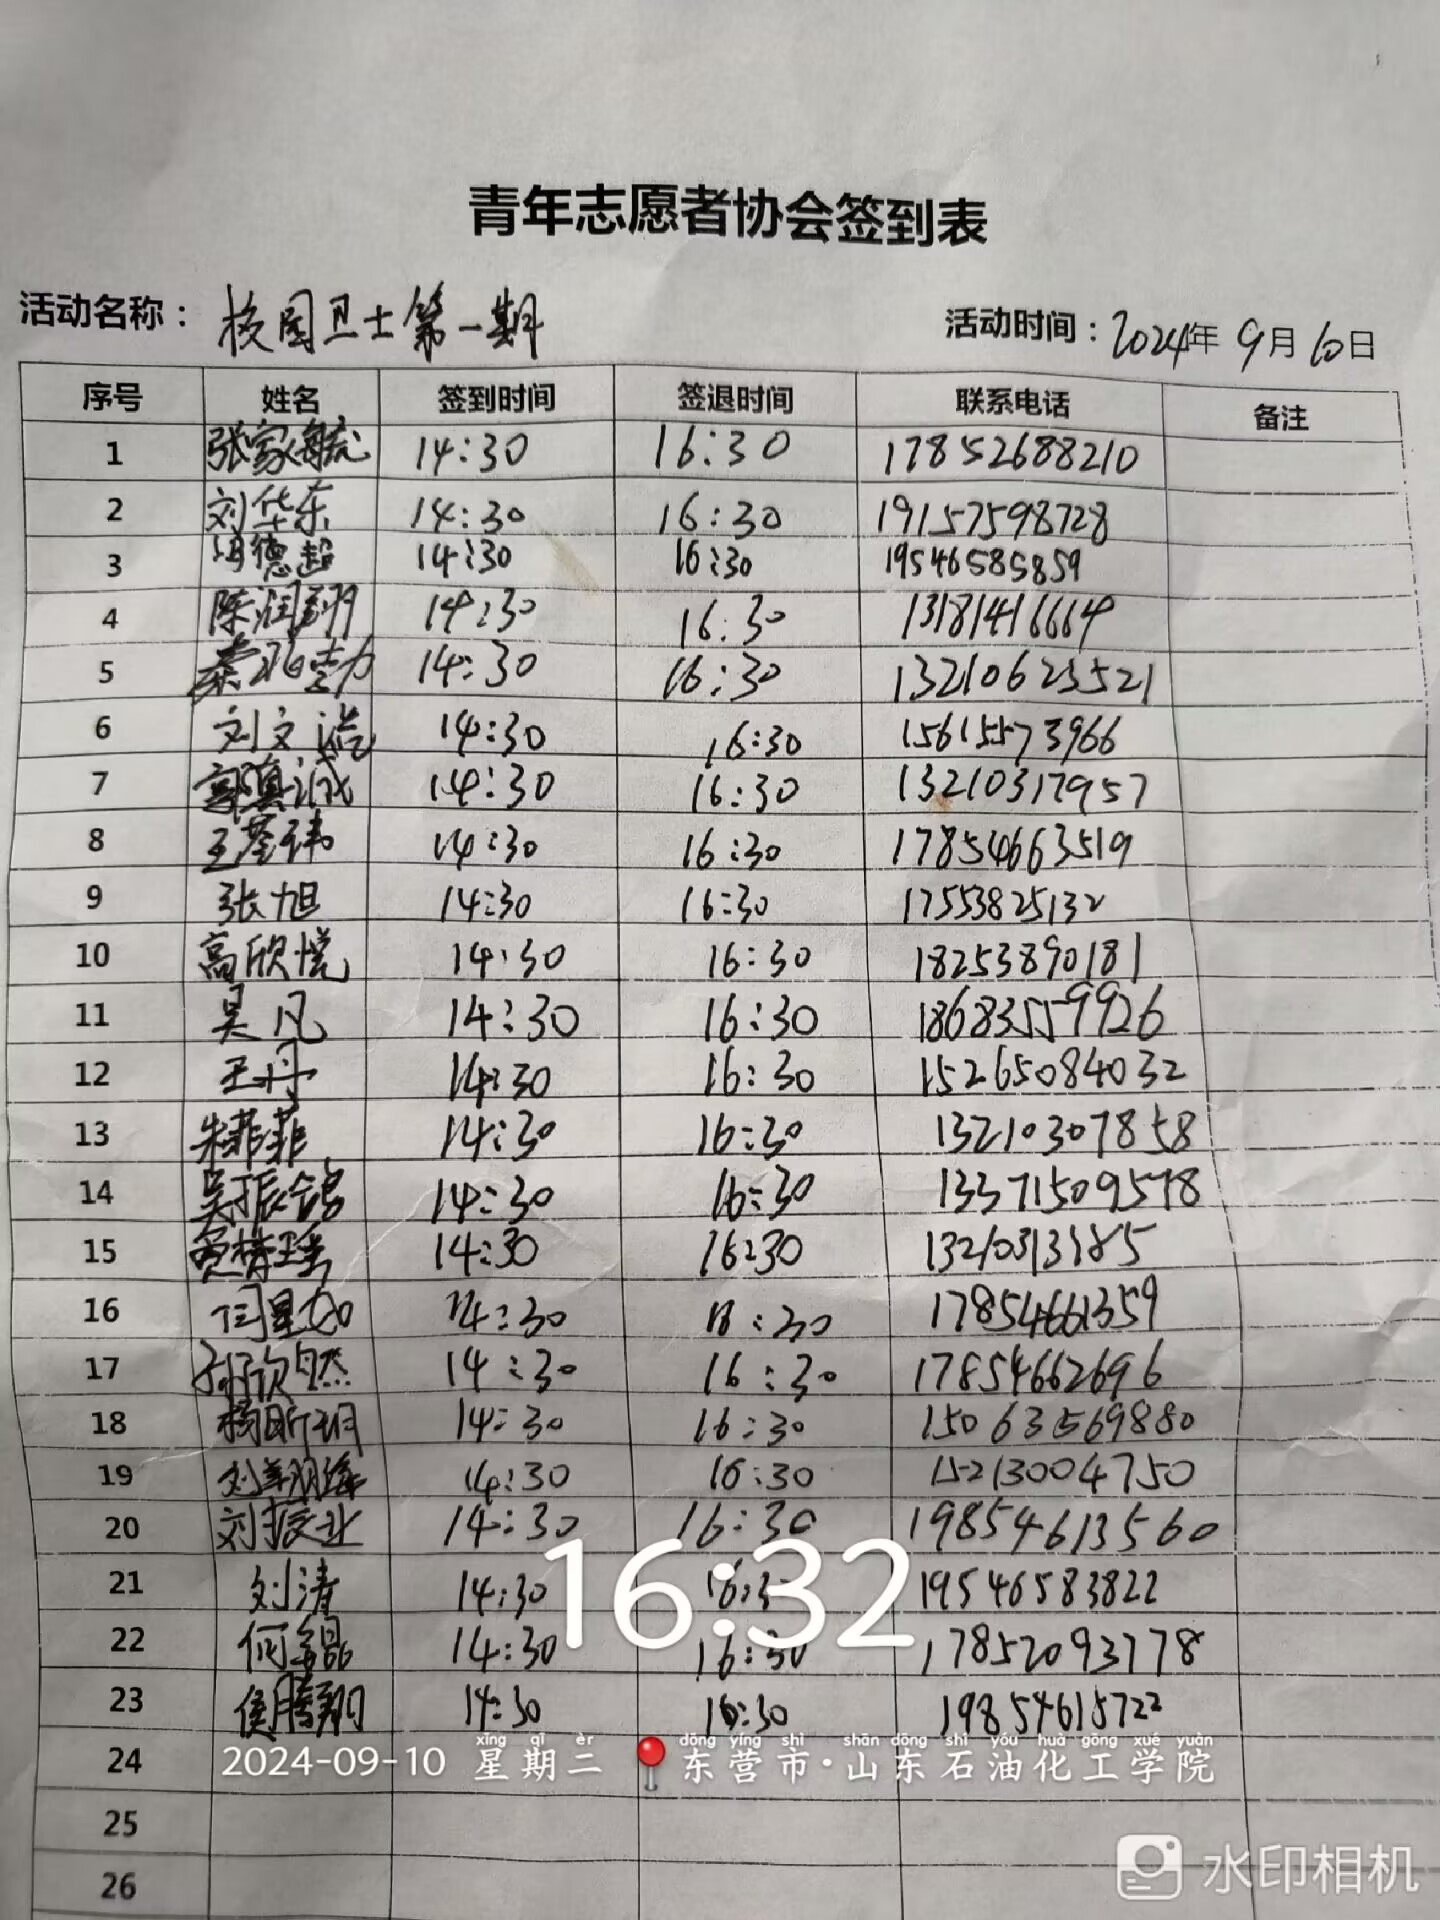 青年志愿者协会签到表
活动名称： 校园卫士第一期 活动时间：2024年 9月10日
序号 姓名 签到时间 签退时间 联系电话 备注
1 张家毓 14:30 16:30 17852688210
2 刘华东 14:30 16:30 19157598728
3 德超 14:30 16:30 19546585859
4 陈润翔 14:30 16:30 13181416664
5 14:30 16:30 13210623521
6 刘文 14:30 16:30 15615573966
7 诚 14:30 16:30 13210317957
8 王荃祎 14:30 16:30 17854663519
9 张旭 14:30 16:30 17553825132
10 高欣悦 14:30 16:30 18253890181
11 吴凡 14:30 16:30 18683559926
12 王丹 14:30 16:30 15265084032
13 朱菲菲 14:30 16:30 13210307858
14 吴振 14:30 16:30 13371509578
15 14:30 16:30 13210313185
16 闫星如 14:30 :30 17854661359
17 孙欣然 14:30 16:30 17854662696
18 杨昕玥 14:30 16:30 15063569880
19 刘 14:30 16:30 15213004750
20 刘振业 14:30 16:30 19854613560
21 刘清 14:30 16:3 19546583822
22 何 14:30 16:30 17852093778
23 侯腾翔 14:30 16:30 19854615722
16:32
xīng qī èr dōng yíng shì shān dōng shí yóu huà gōng xué yuàn
24 2024-09-10 星期二 东营市·山东石油化工学院
25
26
水印相机